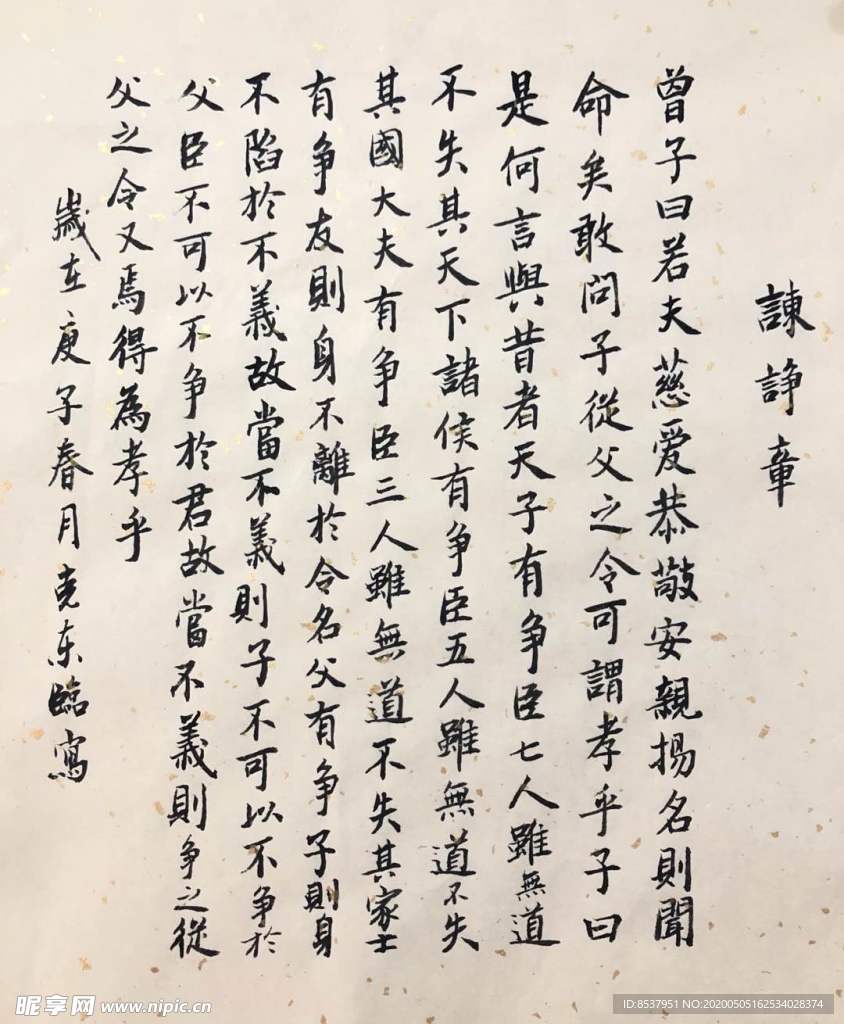 諫諍章
曾子曰若夫慈爱恭敬安親揚名則聞
命矣敢問子從父之令可謂孝乎子曰
是何言與昔者天子有争臣七人雖無道
不失其天下諸侯有争臣五人雖無道不失
其國大夫有争臣三人雖無道不失其家士
有争友則身不離於令名父有争子則身
不陷於不義故當不義則子不可以不争於
父臣不可以不争於君故當不義則争之從
父之令又焉得為孝乎
歲在庚子春月克东臨寫
昵享网 www.nipic.cn
ID:8537951 NO:20200505162534028374